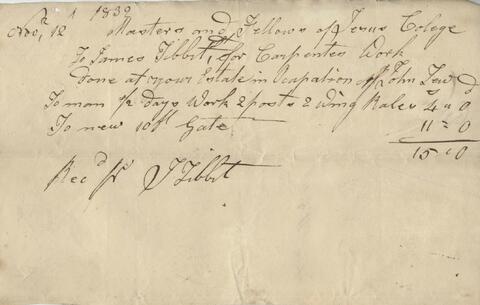 Novr 12th 1839 Masters and Fellows of Jesus Colege
To James Tibbit, for Carpentes Work
Done at your Estate in Ocapation of John
To man ½ days Work 2 posts 2 wing Rales 4 = 0
To new 10ft Gate 11 = 0
15 = 0
Recd J Tibbit